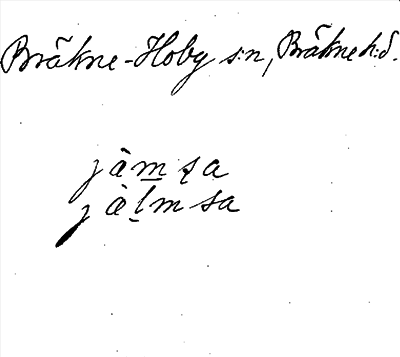 Bräkne-Hoby s:n, Bräkne h:d.
jàm̲sa
jàl̲msa